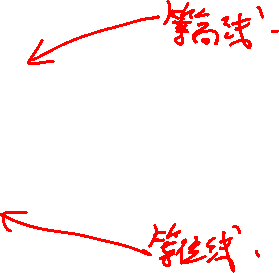 等高线
等位线